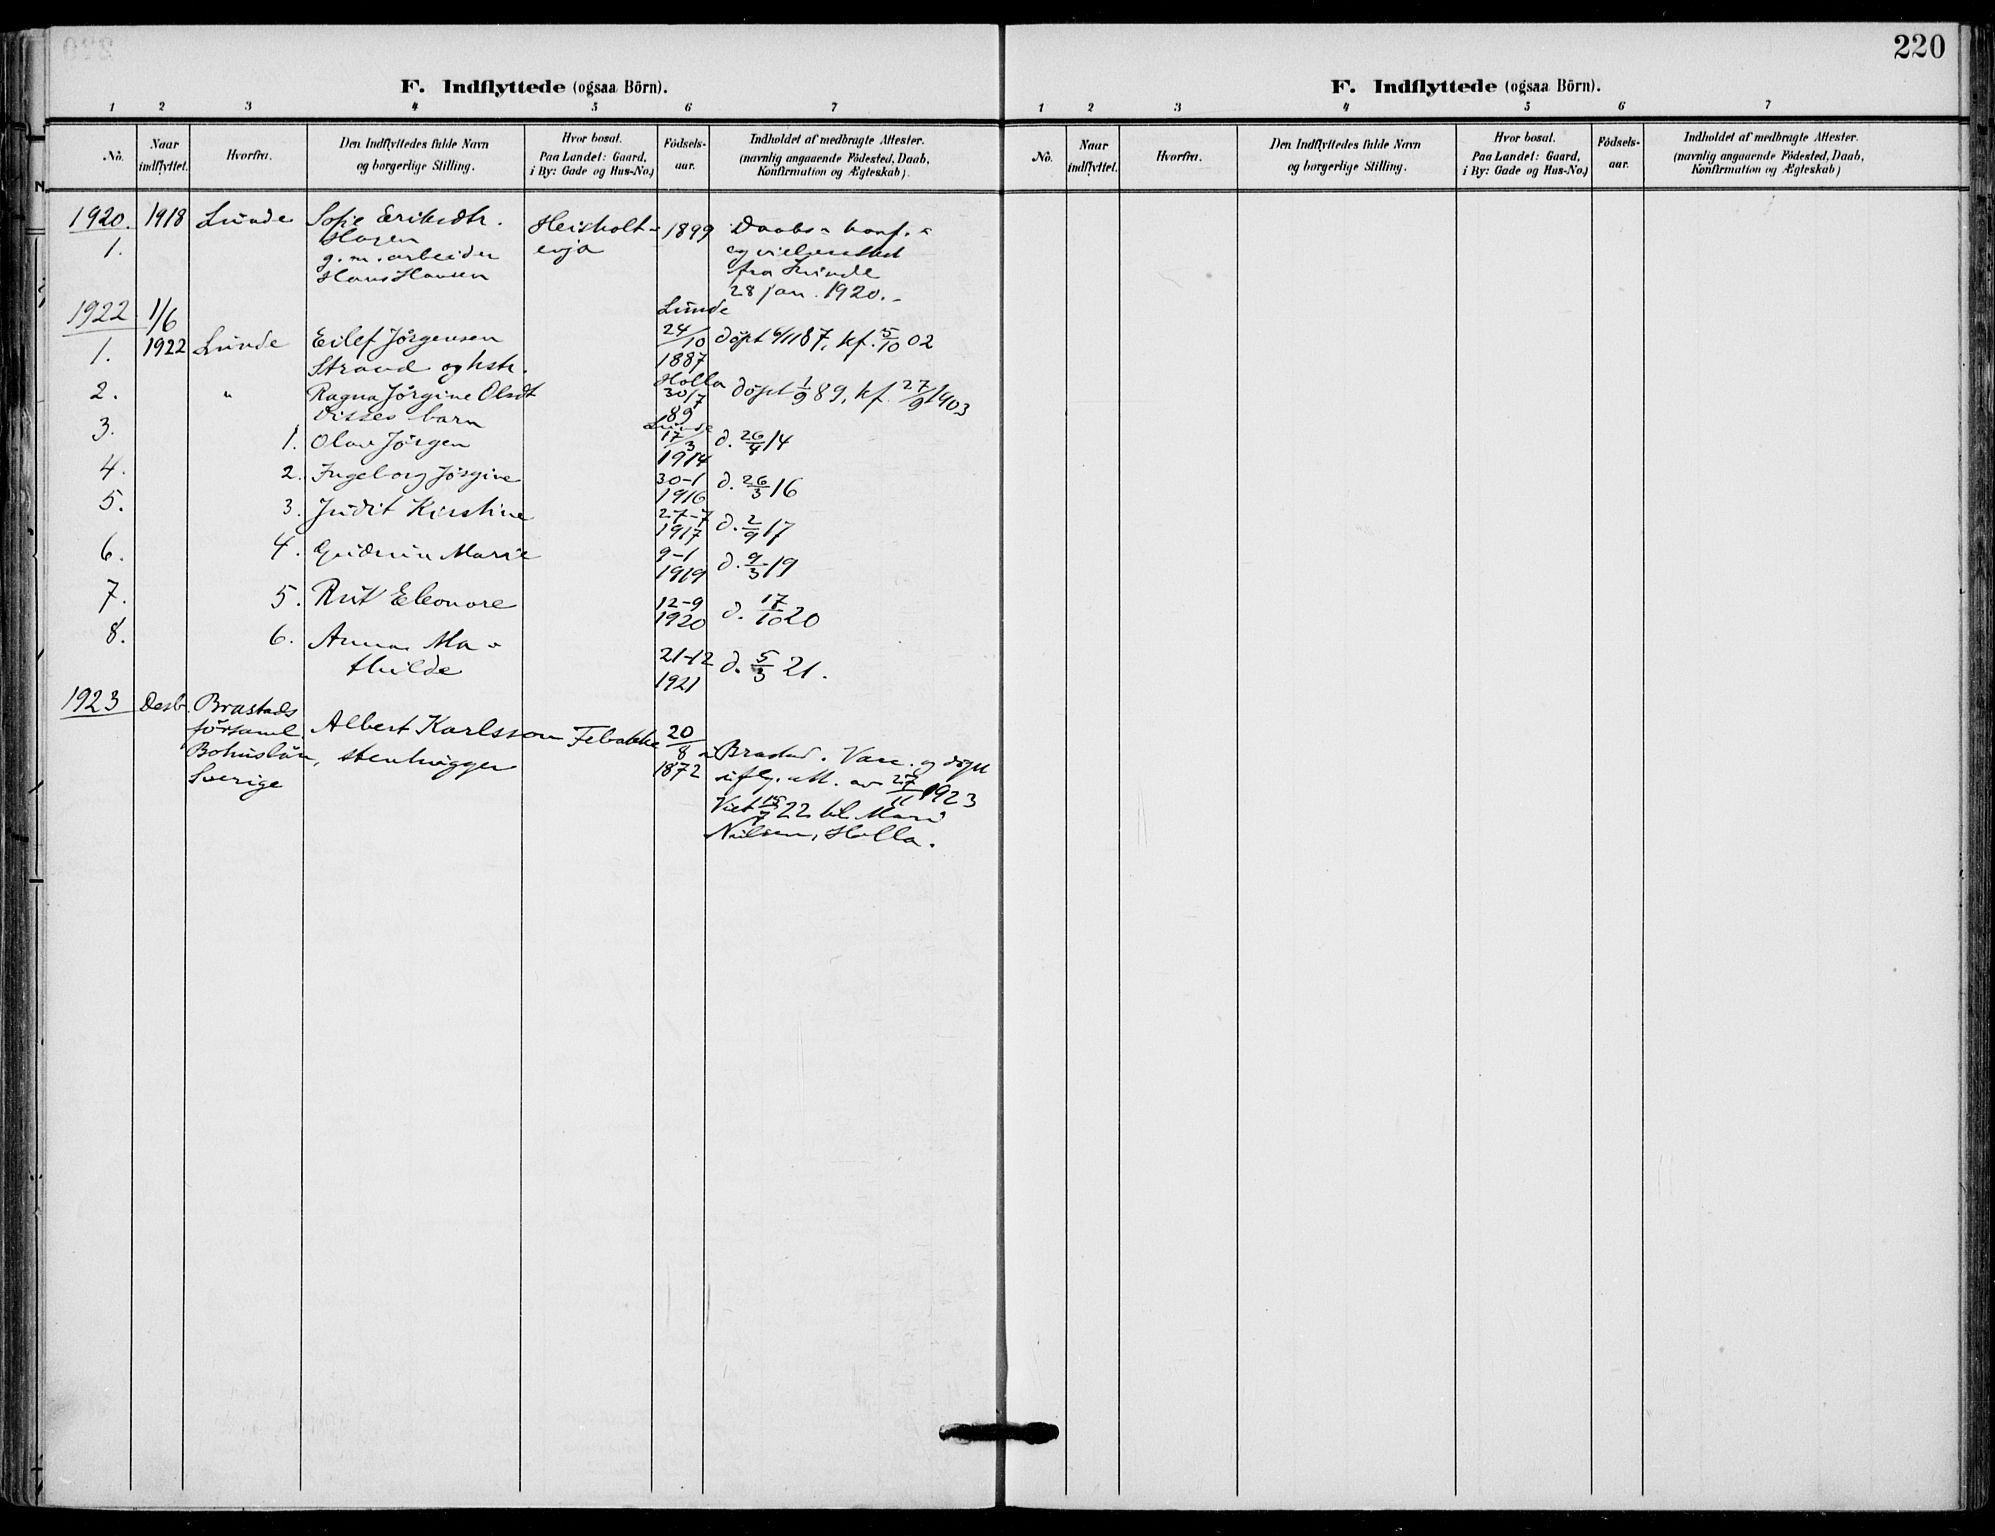 220
F. Indflyttede (ogsaa Börn).
1 2 3 4 5 6 7
No.
Naar indflyttet.
Hvorfra.
Den Indflyttedes fulde Navn
og borgerlige Stilling.
Hvor bosat.
Paa Landet: Gaard,
i By: Gade og Hus-No.)
Födsels-
aar.
Indholdet af medbragte Attester.
(navnlig angaaende Födested, Daab,
Konfirmation og Ægteskab).
1920. 1918 Lunde Sofie Eriksdtr. Heisholt- 1899 Daabs- konf.-
1. Hagen eija og vielsesattest
g. m. arbeider fra Lunde
Hans Hansen 28 jan. 1920.-
1922 1/6 Lunde
1. 1922 Lunde Eilef Jörgensen 24/10 1887 döpt 6/11 87, kf. 5/10 02
Strand og hstr.
2. " Ragna Jörgine Olsdt Holla 30/7 89 döpt 1/9 89, kf. 27/9 1903
Disses barn
3. 1. Olav Jörgen Lunde 17/3 1914 d. 26/4 14
4. 2. Ingeborg Jörgine 30-1 1916 d. 26/3 16
5. 3. Judit Kirstine 27-7 1917 d. 2/9 17
6. 4. Gudrun Marie 9-1 1919 d. 9/3 19
7. 5. Rut Eleonore 12-9 1920 d. 17/10 20
8. 6. Anna Ma-
thilde 21-12 1921 d. 5/3 21.
1923 Desbr. Brastads
församl. Albert Karlsson Febakke 20/8
Bohuslän, stenhugger 1872 i Brastad. Vacc. og döpt
Sverige iflg. att. av 27/11 1923
Viet 15/7 22 til Mari
Nilsen, Holla.
F. Indflyttede (ogsaa Börn).
1 2 3 4 5 6 7
No.
Naar
indflyttet.
Hvorfra.
Den Indflyttedes fulde Navn
og borgerlige Stilling.
Hvor bosat.
Paa Landet: Gaard,
i By: Gade og Hus-No.)
Födsels-
aar.
Indholdet af medbragte Attester.
(navnlig angaaende Födested, Daab,
Konfirmation og Ægteskab)